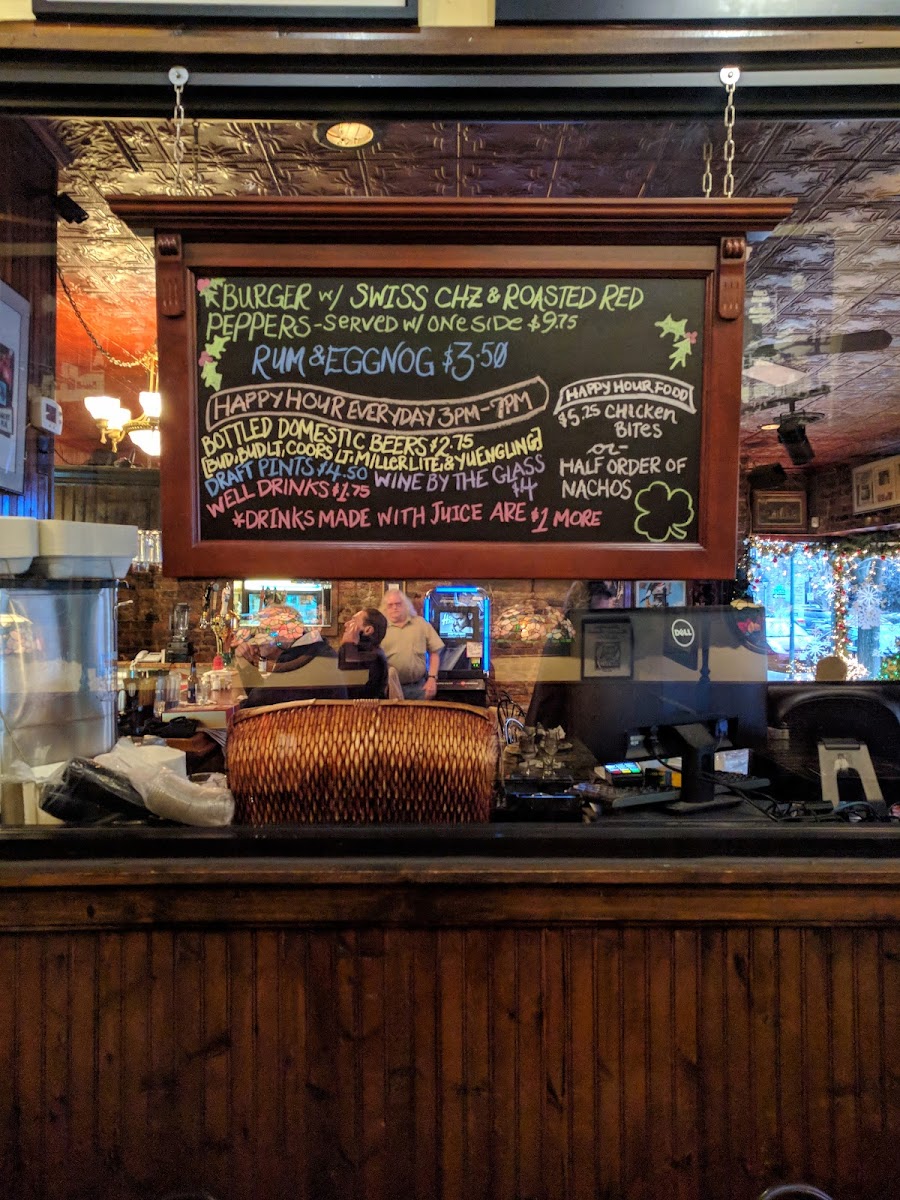 *BURGER W/ SWISS CHZ & ROASTED RED
PEPPERS - SERVED W/ ONE SIDE $9.75
RUM & EGGNOG $3.50
HAPPY HOUR EVERYDAY 3PM-7PM
BOTTLED DOMESTIC BEERS $2.75
[BUD, BUD LT, COORS LT, MILLER LITE, & YUENGLING]
DRAFT PINTS $4.50 WINE BY THE GLASS
$4
WELL DRINKS $1.75
*DRINKS MADE WITH JUICE ARE $1 MORE
HAPPY HOUR FOOD
$5.25 CHICKEN
BITES
-OR-
HALF ORDER OF
NACHOS
DELL